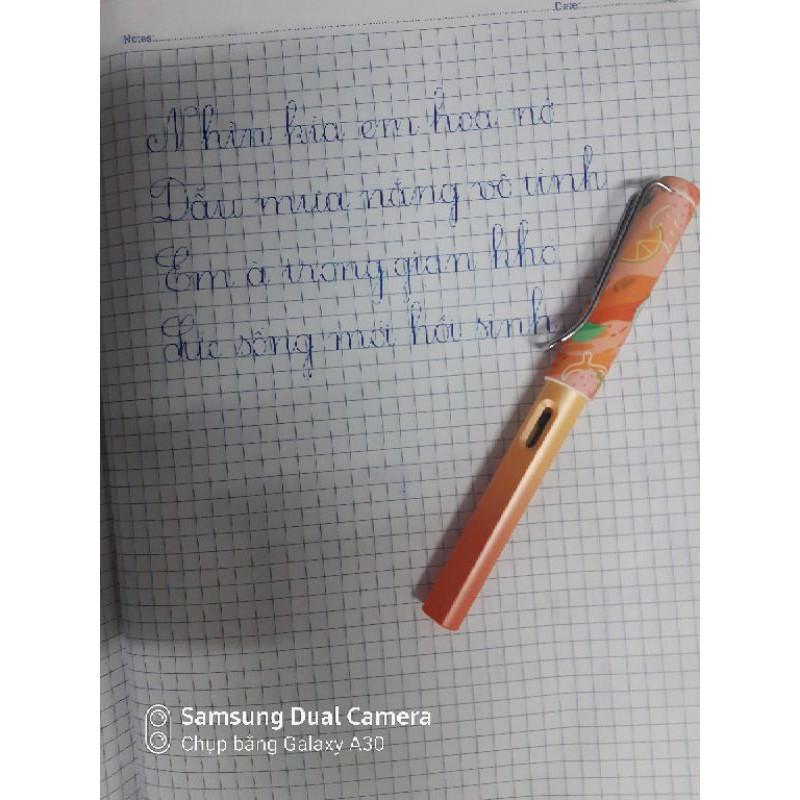 Notes:
Date:
Nhìn kìa em hoa nở
Dẫu mưa nắng vô tình
Em à trong gian khó
Sức sống mới hồi sinh
Samsung Dual Camera
Chụp bằng Galaxy A30